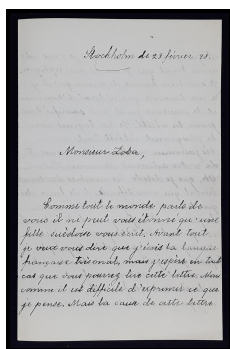 Stockholm de 23 février 98.
Monsieur Zola,
Comme tout le monde parle de
vous il ne peut vous étonner qu'une
fille suédoise vous écrit. Avant tout
je veux vous dire que j'écris la langue
française très mal, mais j'espère en tout
cas que vous pourrez lire cette lettre. Mais
comme il est difficile d'exprimer ce que
je pense. Mais la cause de cette lettre